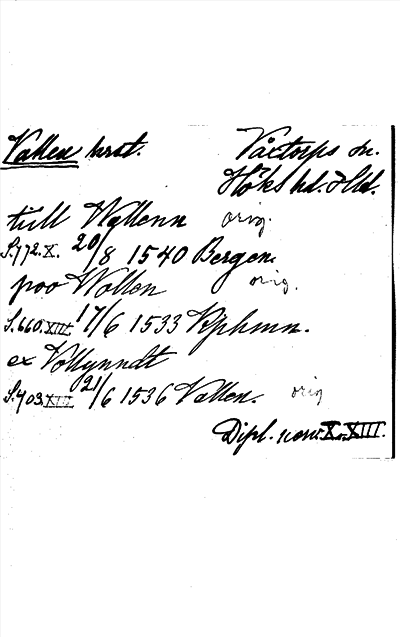 Vallen herat. Växtorps sn.
Höks hd. Hld.
till Wallenn orig.
S. 772. X. 20/8 1540 Bergen.
poo Wollen orig.
S. 660. XIII 17/6 1533 Kjphmn.
ex Vollynndt
S. 703 XIII 21/6 1536 Vallen. orig
Dipl. norv. X. XIII.